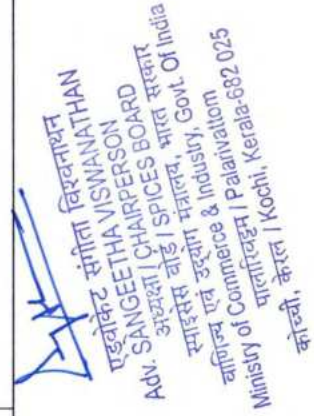 एडवोकेट संगीता विश्वनाथन
Adv. SANGEETHA VISWANATHAN
अध्यक्षा / CHAIRPERSON
स्पाइसेस बोर्ड / SPICES BOARD
वाणिज्य एवं उद्योग मंत्रालय, भारत सरकार
Ministry of Commerce & Industry, Govt. Of India
पालारिवट्टम / Palarivattom
कोच्ची, केरल / Kochi, Kerala-682 025